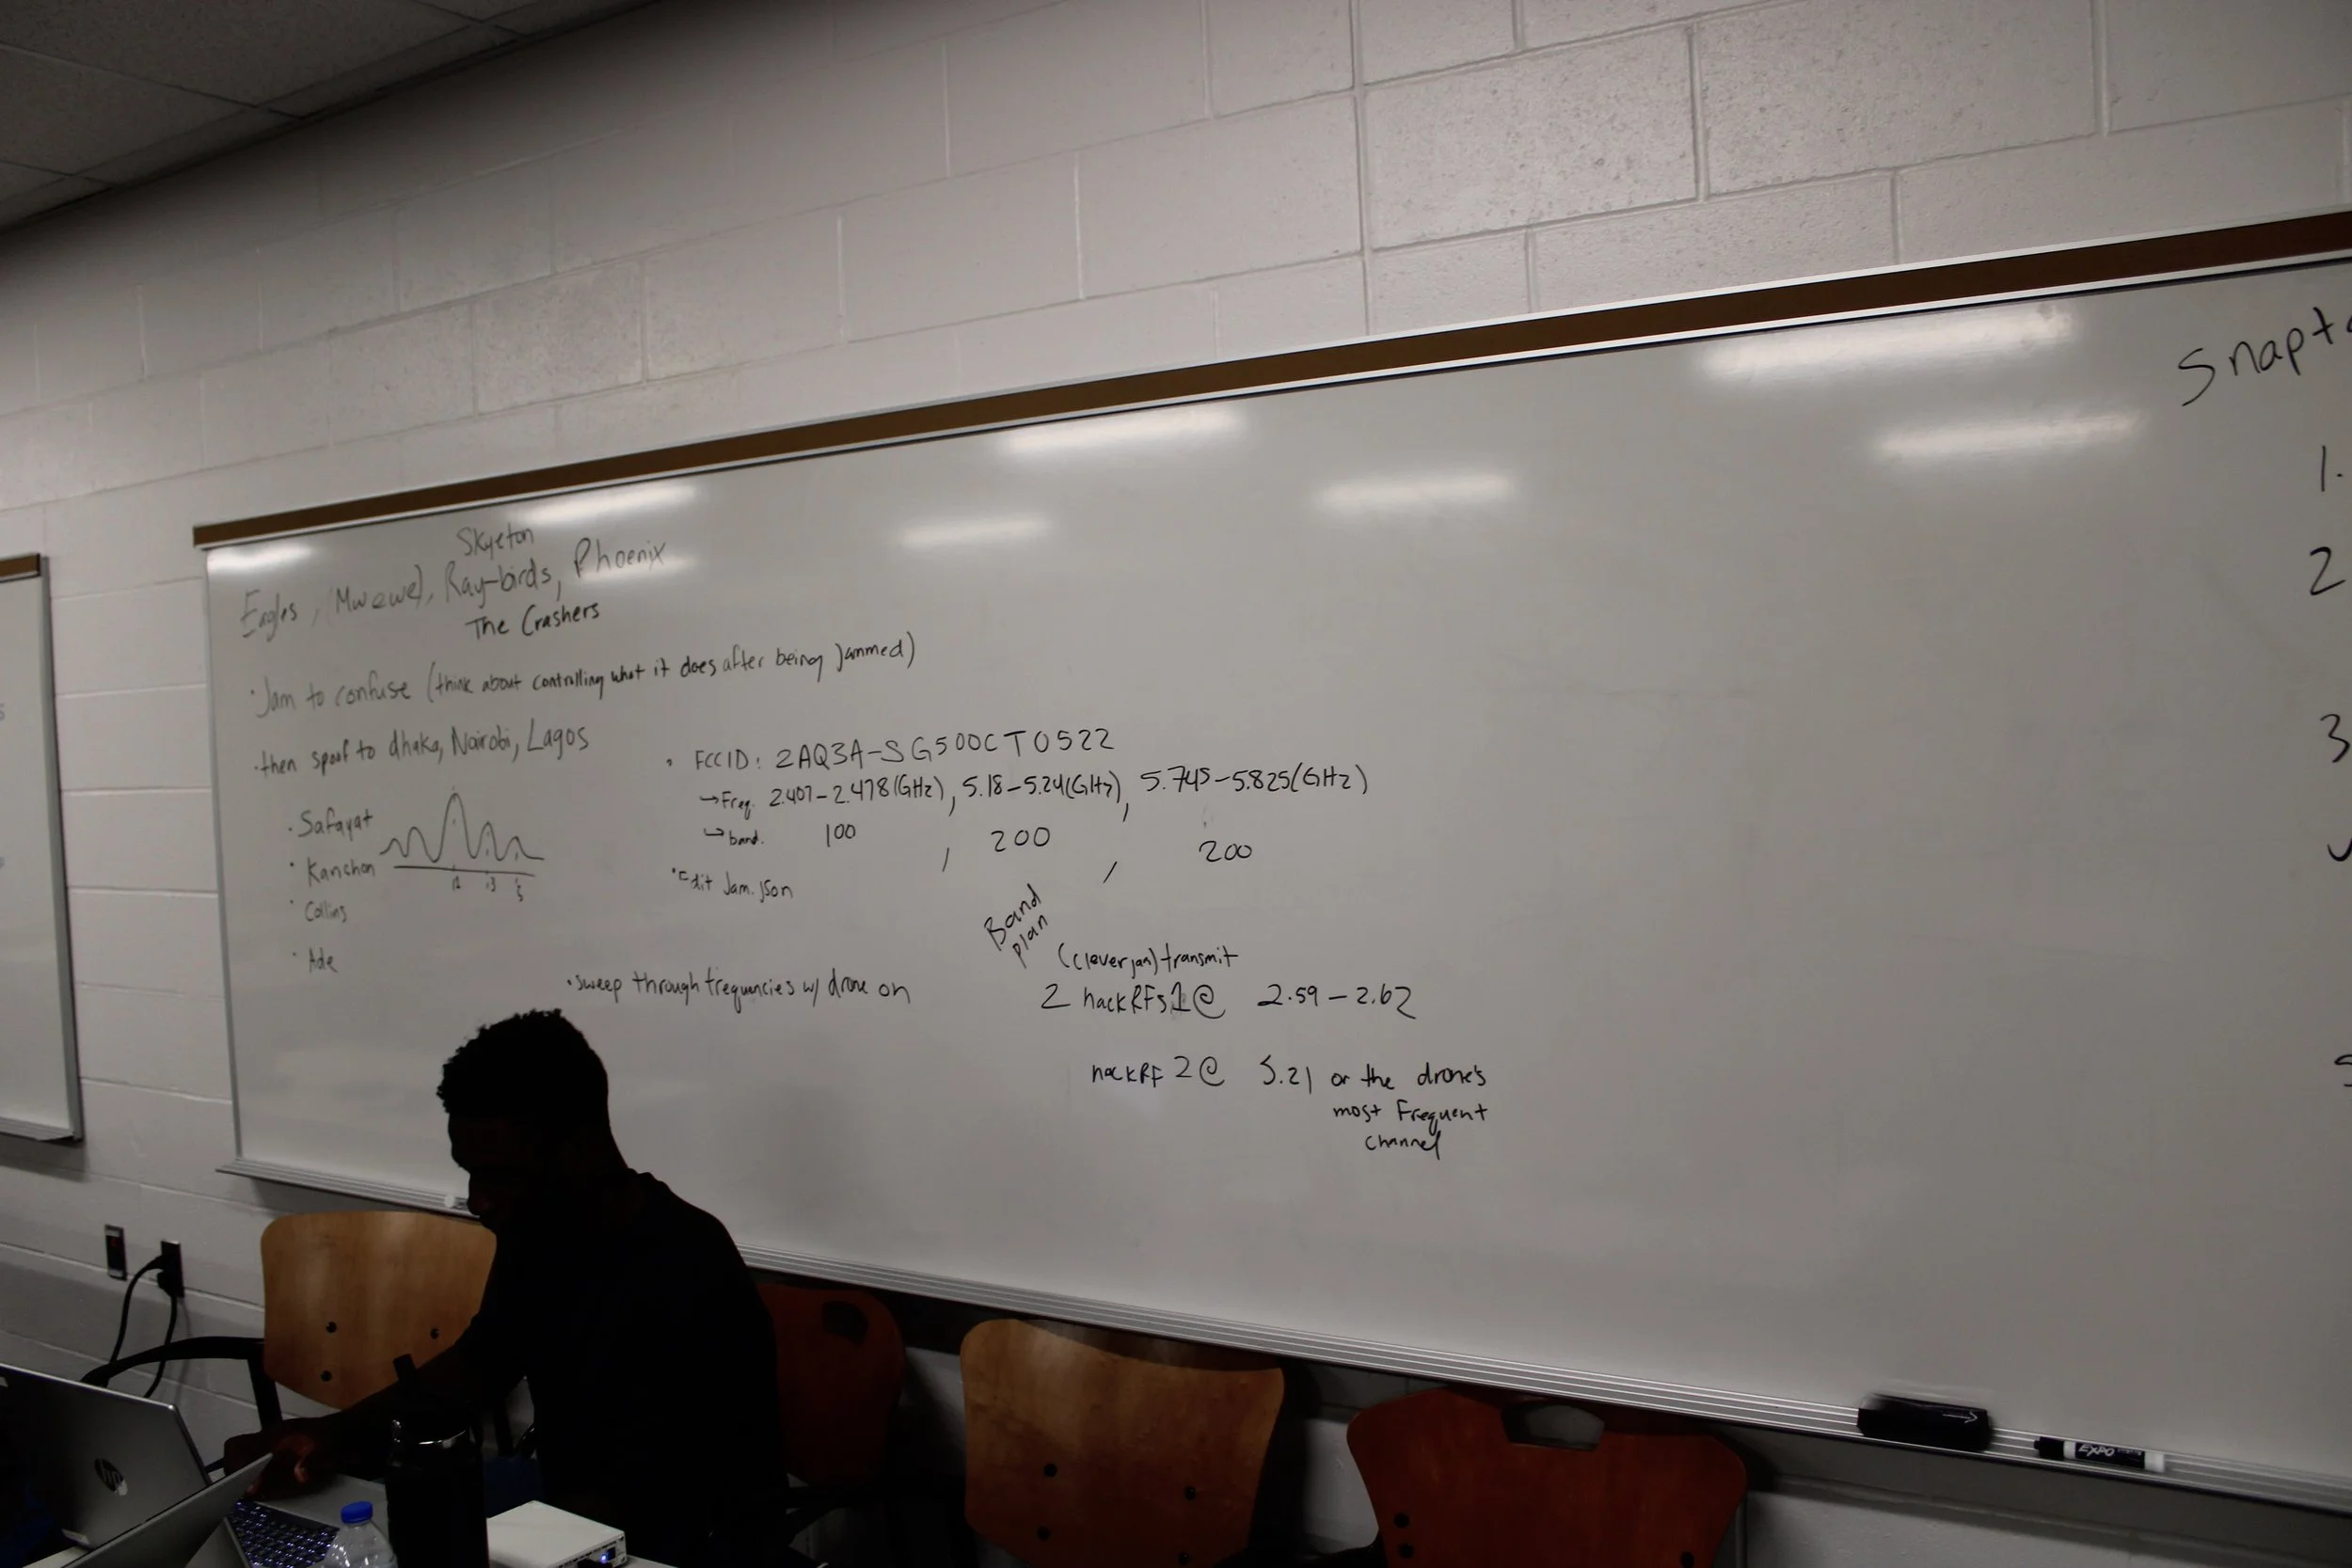 Skyeton
Eagles, (Mwewe), Ray-birds, Phoenix
The Crashers
· Jam to confuse (think about controlling what it does after being jammed)
· then spoof to dhaka, Nairobi, Lagos
· Safayat
· Kanchon
· Collins
· Ade
· FCCID: 2AQ3A-SG500CT0522
↳ Freq. 2.407-2.478(GHz), 5.18-5.24(GHz), 5.745-5.825(GHz)
↳ band. 100, 200, 200
· Edit Jam.json
· sweep through frequencies w/ drone on
Band plan
(cleverjam) transmit
2 hackRFs 1 @ 2.59-2.62
hackRF 2 @ 5.21 or the drone's
most frequent
channel
1.
2
3
hp
EXPO